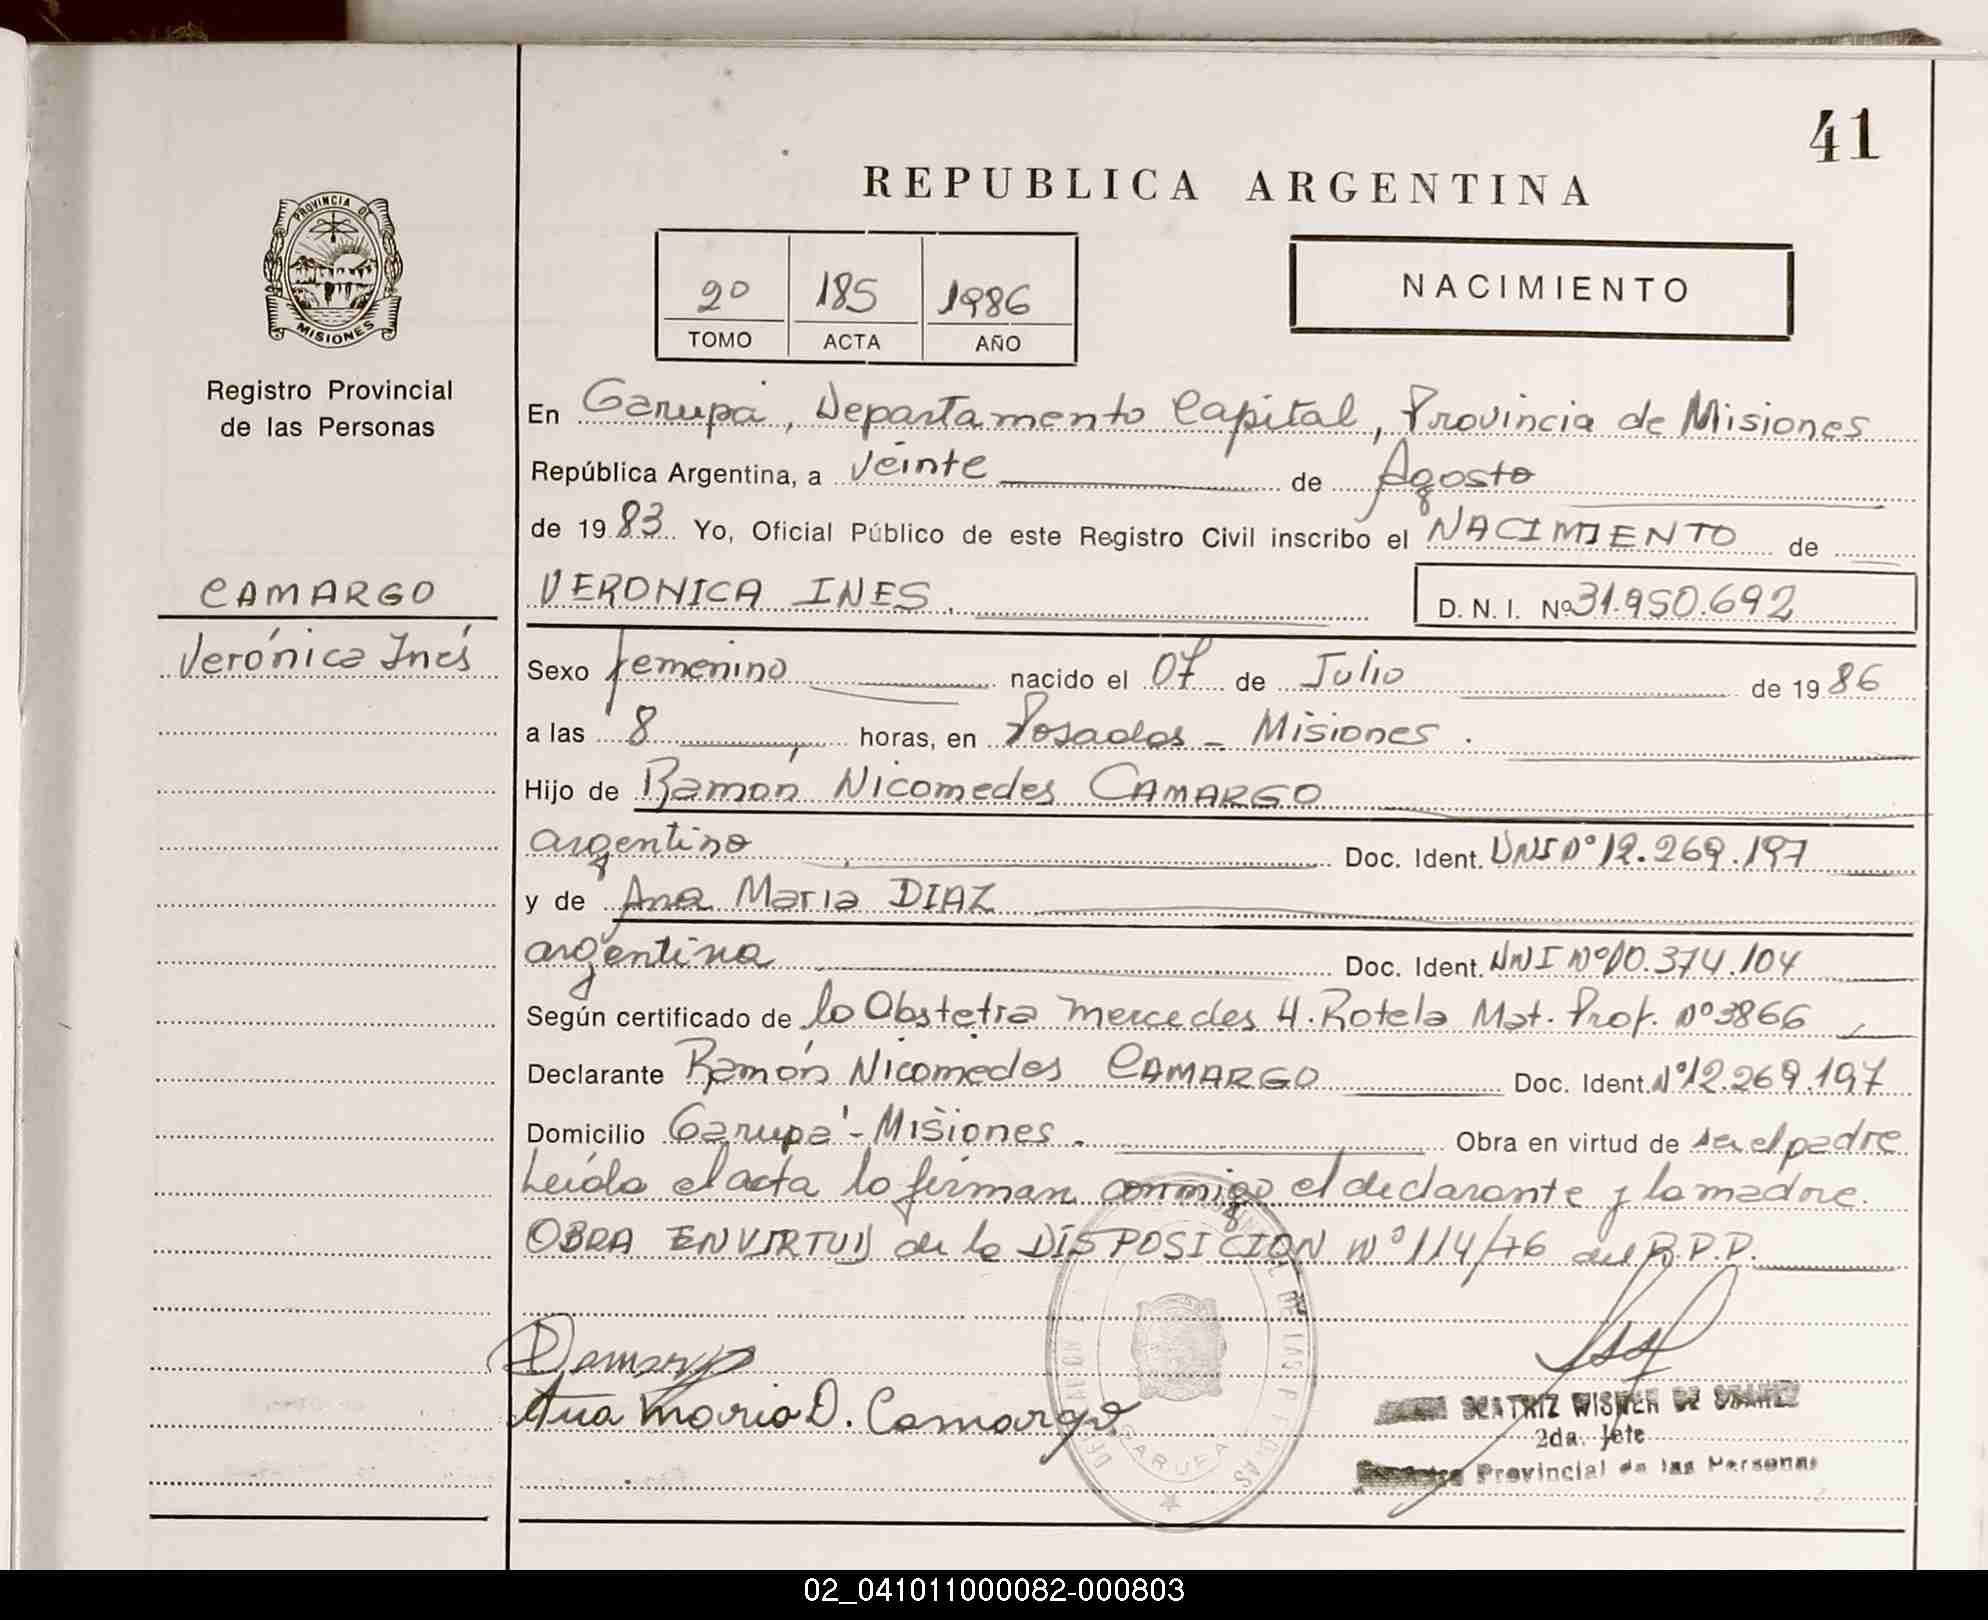 41
REPUBLICA ARGENTINA
PROVINCIA DE
MISIONES
Registro Provincial
de las Personas
2º 185 1986
TOMO ACTA AÑO
NACIMIENTO
En Garupá, Departamento Capital, Provincia de Misiones
República Argentina, a Veinte de Agosto
de 1983 Yo, Oficial Público de este Registro Civil inscribo el NACIMIENTO de
CAMARGO
Verónica Inés
VERONICA INES D. N. I. Nº 31.950.692
Sexo femenino nacido el 07 de Julio de 1986
a las 8 horas, en Posadas - Misiones.
Hijo de Ramón Nicomedes CAMARGO
argentino Doc. Ident. DNI Nº 12.269.197
y de Ana Maria DIAZ
argentina Doc. Ident. DNI Nº 10.374.104
Según certificado de la Obstetra Mercedes H. Rotela Mat. Prof. Nº 3866
Declarante Ramón Nicomedes CAMARGO Doc. Ident. Nº 12.269.197
Domicilio Garupá - Misiones. Obra en virtud de ser el padre
Leída el acta la firman conmigo el declarante y la madre.
OBRA EN VIRTUD de la DISPOSICION Nº 114/76 del R.P.P.
Ana Maria D. Camargo
BEATRIZ WISNER DE SUAREZ
2da. Jefe
Provincial de las Personas
GARUPA
02_041011000082-000803